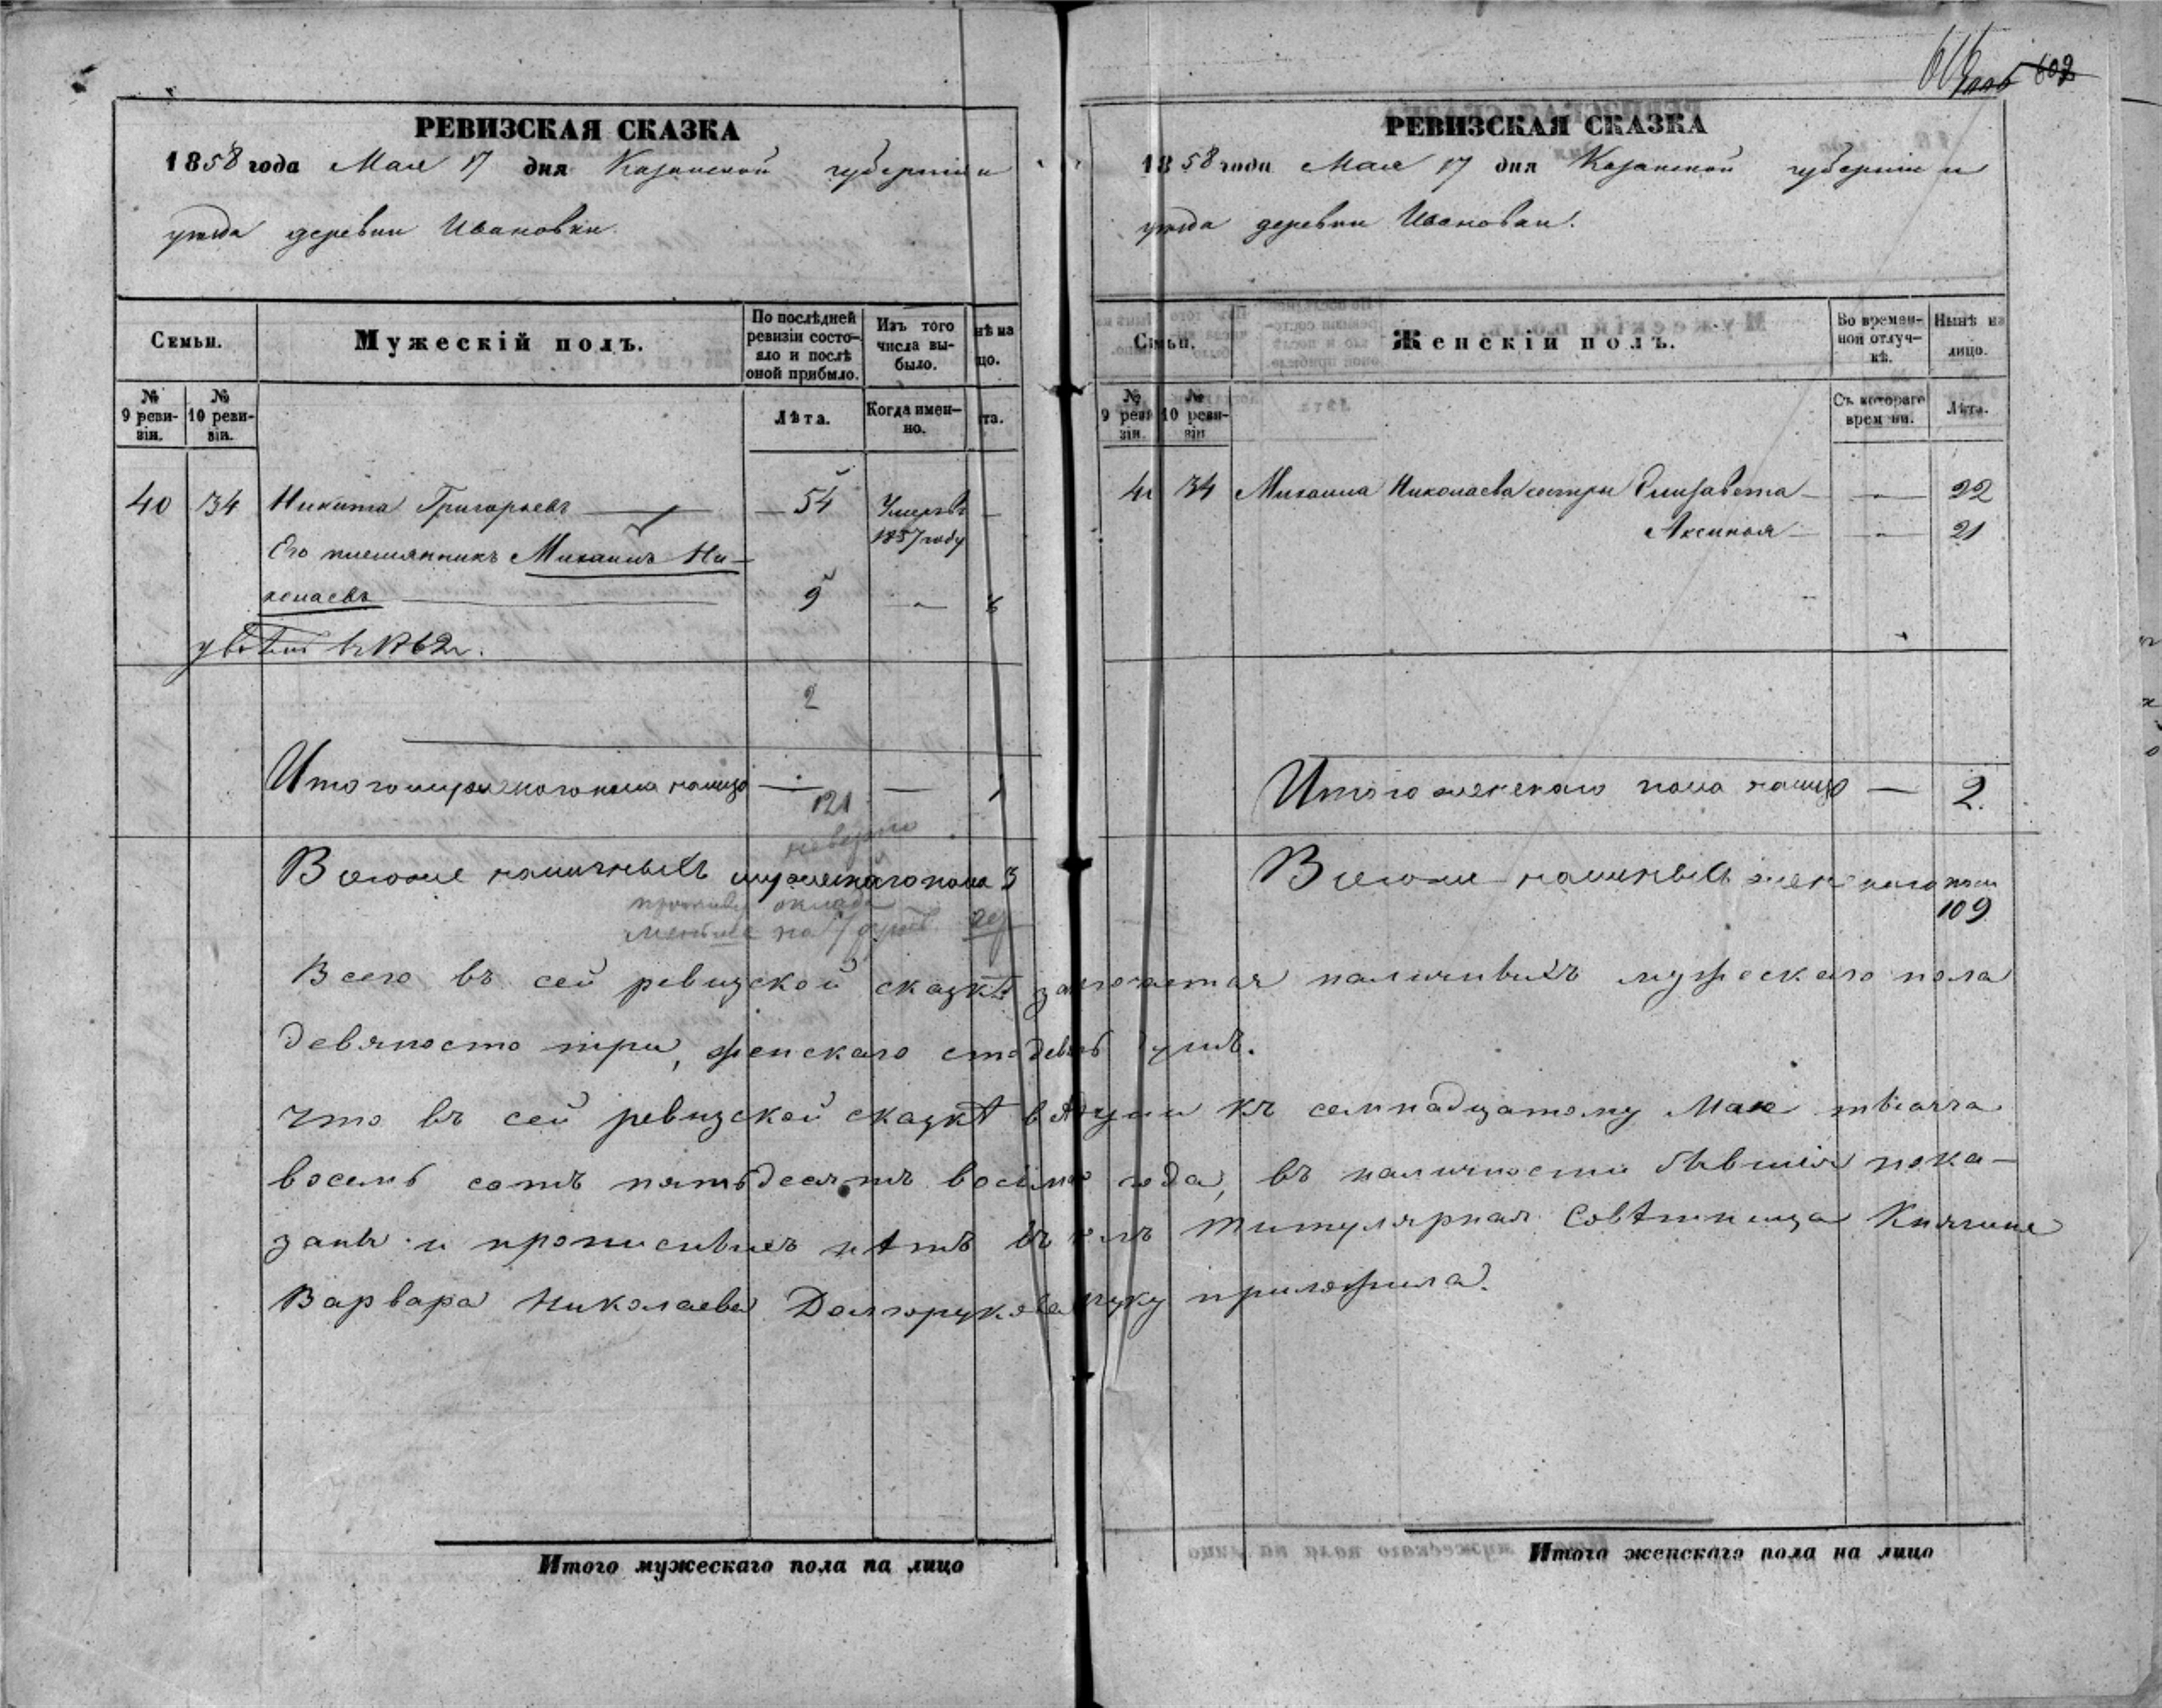 616
602
РЕВИЗСКАЯ СКАЗКА
1858 года Мая 17 дня Казанской губерніи и
уѣзда деревни Ивановки.
Семьи.
Мужескій полъ.
По послѣдней ревизіи состояло и послѣ оной прибыло.
Изъ того числа выбыло.
нѣ на
цо.
№ 9 ревизіи.
№ 10 ревизіи.
Лѣта.
Когда именно.
та.
40 34 Никита Григорьевъ 54 Умеръ въ
1857 году
Его племянникъ Михаилъ Ни-
колаевъ 9
въ 1862 г.
2
Итого мужескаго пола налицо
121
невѣрно
Всего же наличныхъ мужескаго пола
противу оклада
меньше на
Всего въ сей ревизской сказкѣ заключается наличныхъ мужескаго пола
девяносто три, женскаго сто девять душъ.
Что въ сей ревизской сказкѣ всѣ души къ семнадцатому Мая тысяча
восемь сотъ пятьдесятъ восьмаго года, въ наличности бывшія пока-
заны и прописныхъ нѣтъ въ томъ Титулярная Совѣтница Княгиня
Варвара Николаева Долгорукова руку приложила.
Итого мужескаго пола на лицо
РЕВИЗСКАЯ СКАЗКА
1858 года Мая 17 дня Казанской губерніи и
уѣзда деревни Ивановки.
Семьи.
Женскій полъ.
Во временной отлучкѣ.
Нынѣ на лицо.
№ 9 ревизіи.
№ 10 ревизіи
Съ котораго времени.
Лѣта.
34 Михаила Николаева сестры Елизавета 22
Аксинья 21
Итого женскаго пола налицо 2.
Всего же наличныхъ женскаго пола
109
Итого женскаго пола на лицо